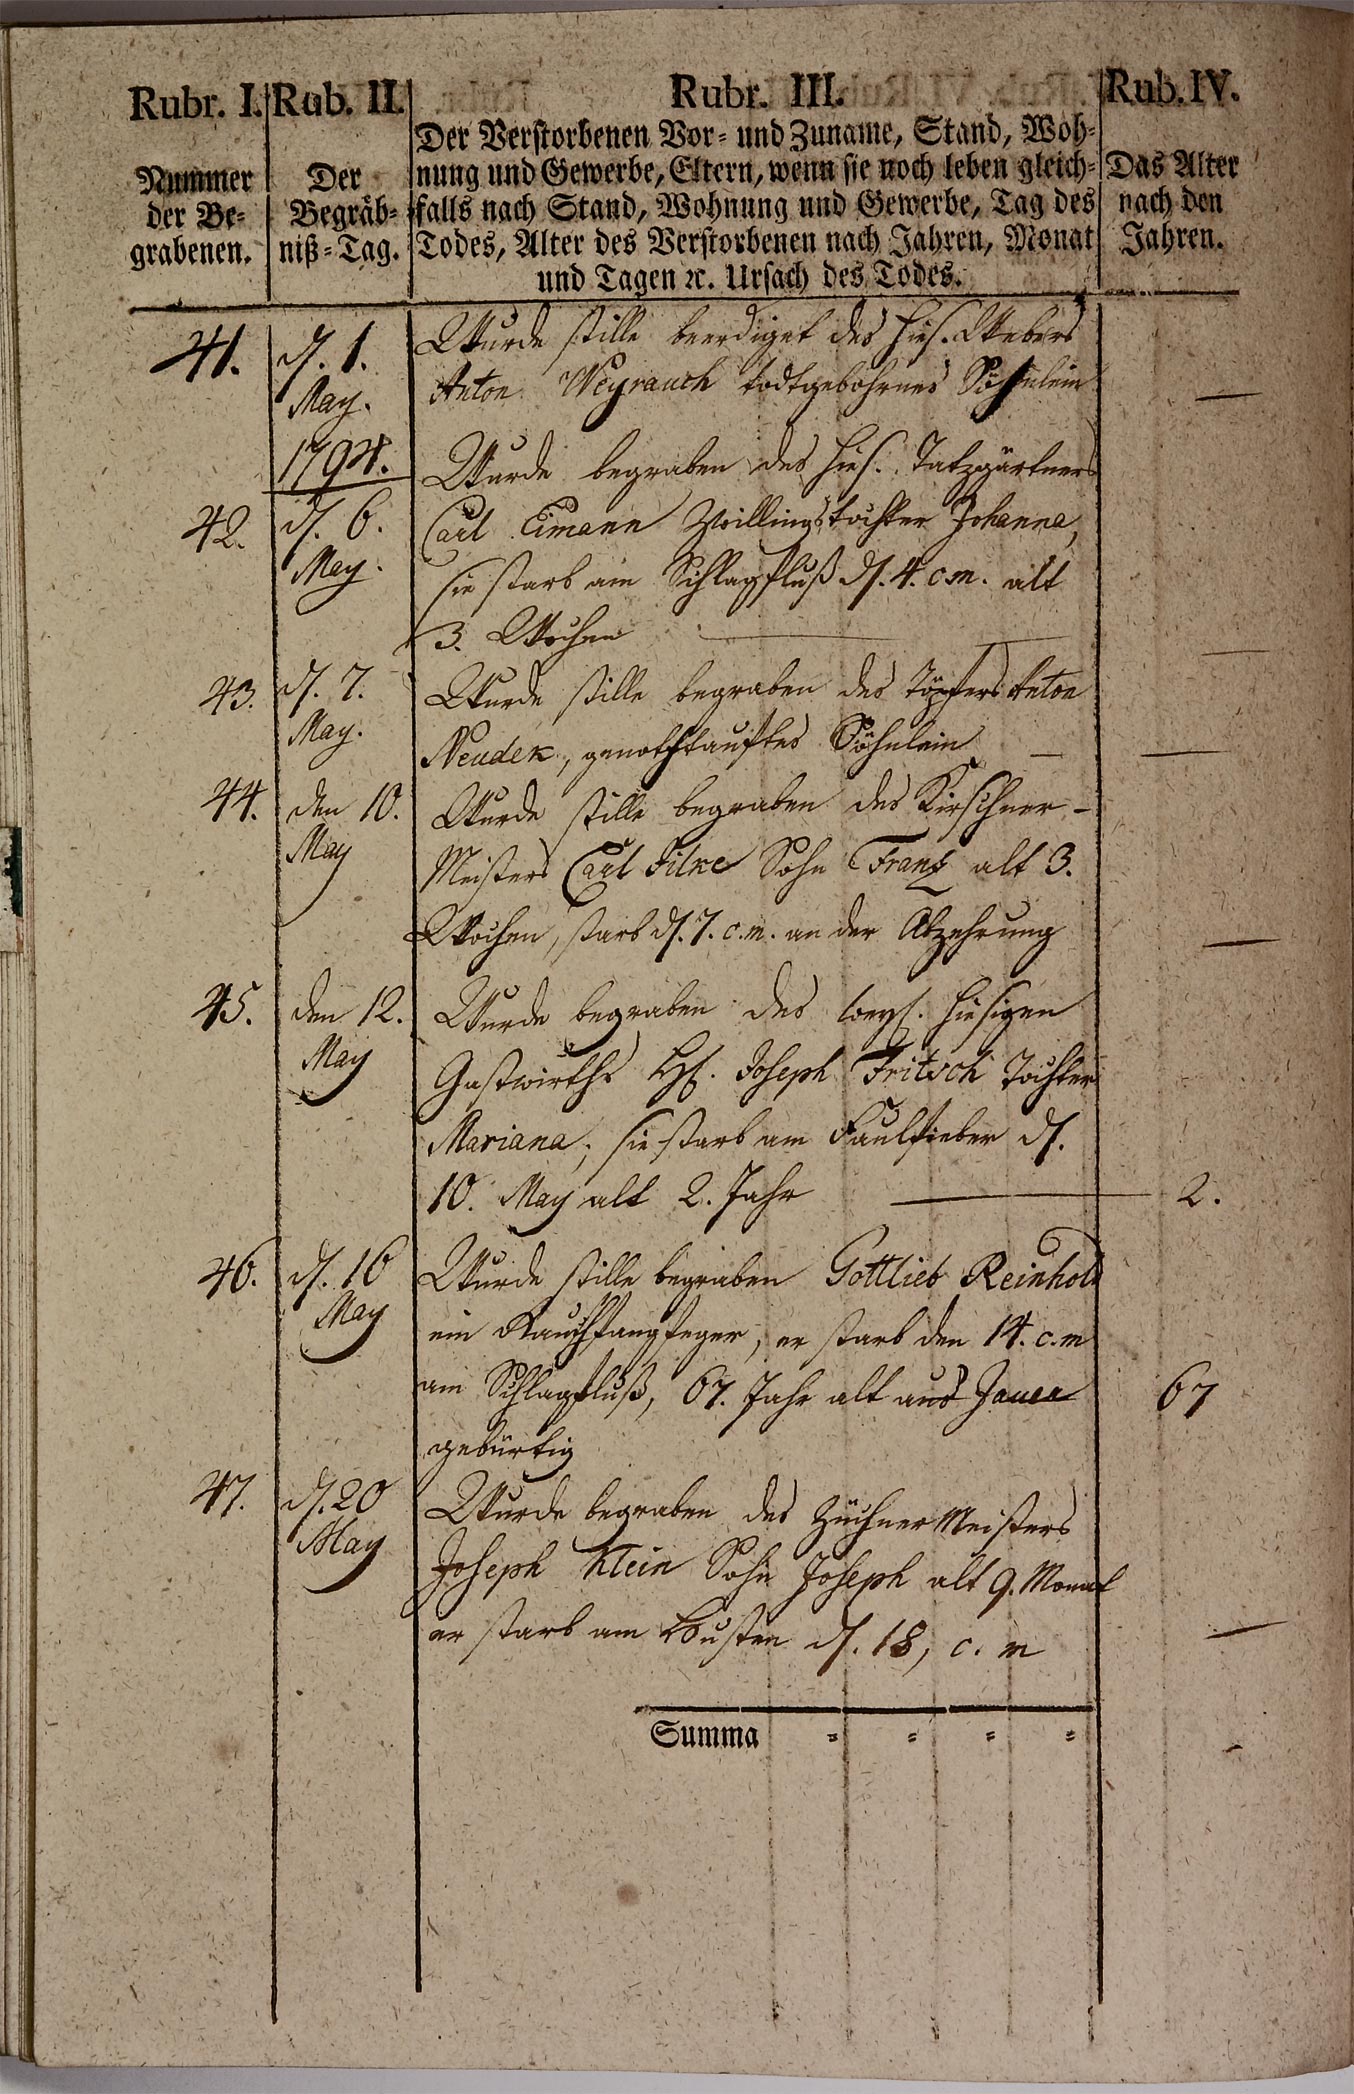 Rubr. I. Rub. II. Rubr. III. Rub. IV.
Der Verstorbenen Vor- und Zuname, Stand, Woh-
nung und Gewerbe, Eltern, wenn sie noch leben gleich-
falls nach Stand, Wohnung und Gewerbe, Tag des
Todes, Alter des Verstorbenen nach Jahren, Monat
und Tagen ꝛc. Ursach des Todes.
Nummer
der Be-
grabenen.
Der
Begräb-
niß-Tag.
Das Alter
nach den
Jahren.
41. d. 1.
May.
1794.
Wurde stille beerdiget des hies. Webers
Anton Weyrauch todtgebohrnes Söhnlein —
42. d. 6.
May.
Wurde begraben des hies.
Carl Eimann Zwillingstochter Johanna,
sie starb am Schlagfluß d. 4. c.m. alt
3. Wochen —
43. d. 7.
May.
Wurde stille begraben des Töpfers Anton
Neudek, genothtauftes Söhnlein —
44. den 10.
May
Wurde stille begraben des Kirschner-
Meisters Carl Filke Sohn Franz alt 3.
Wochen, starb d. 7. c.m. an der Abzehrung —
45. den 12.
May
Wurde begraben des weyl. hiesigen
Gastwirths H. Joseph Fritsch Tochter
Mariana, sie starb am Faulfieber d.
10. May alt 2. Jahr — 2.
46. d. 16
May
Wurde stille begraben Gottlieb Reinhold
ein Rauchfangfeger, er starb den 14. c.m
am Schlagfluß, 67. Jahr alt aus Jauer 67
gebürtig
47. d. 20
May
Wurde begraben des Züchner Meisters
Joseph Klein Sohn Joseph alt 9. Monat
er starb am Husten d. 18, c. m —
Summa